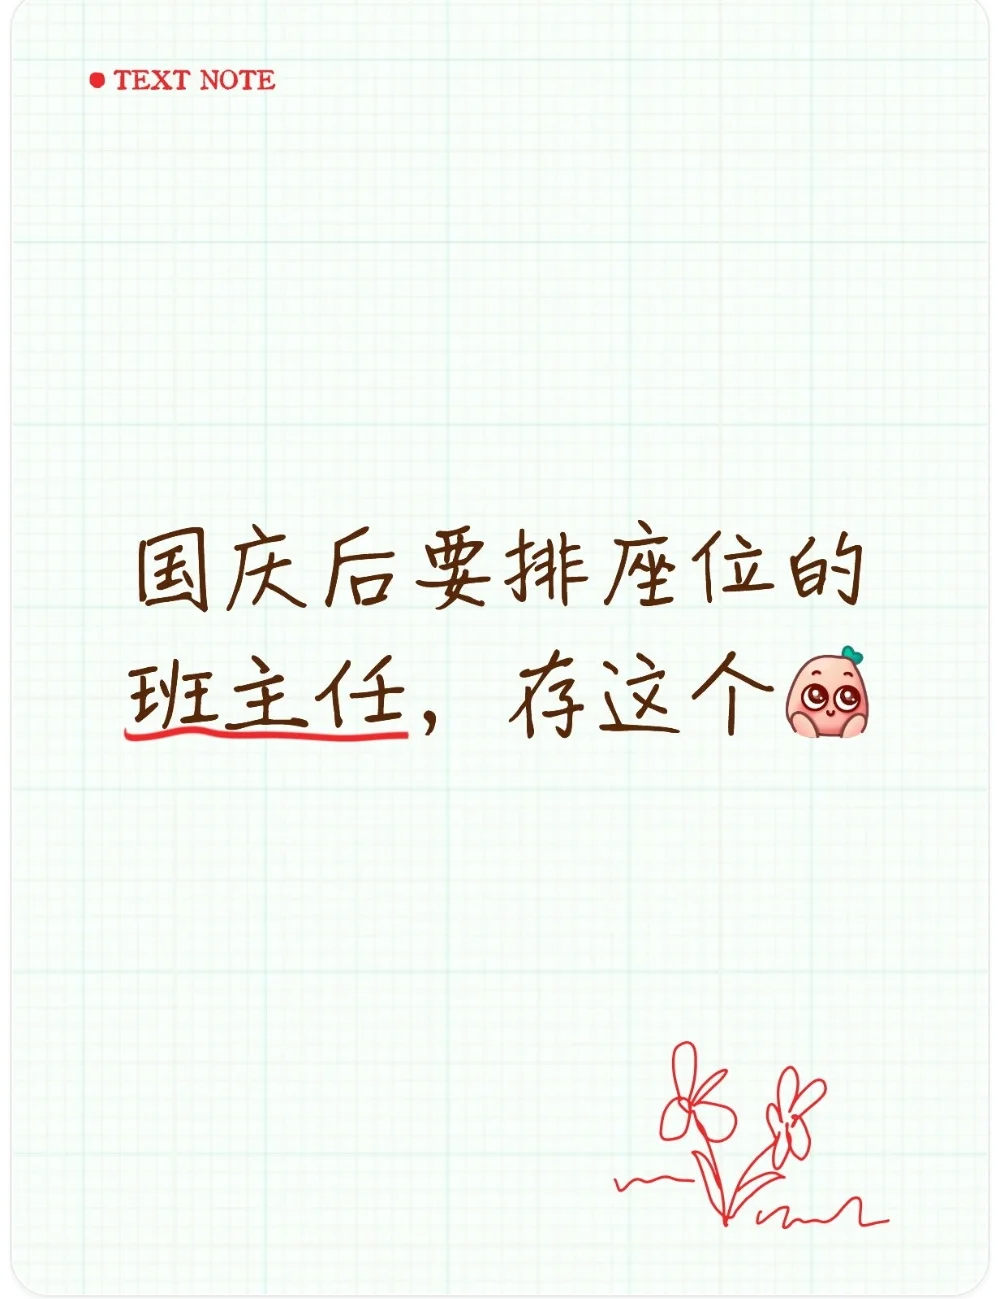 TEXT NOTE
国庆后要排座位的
班主任，存这个